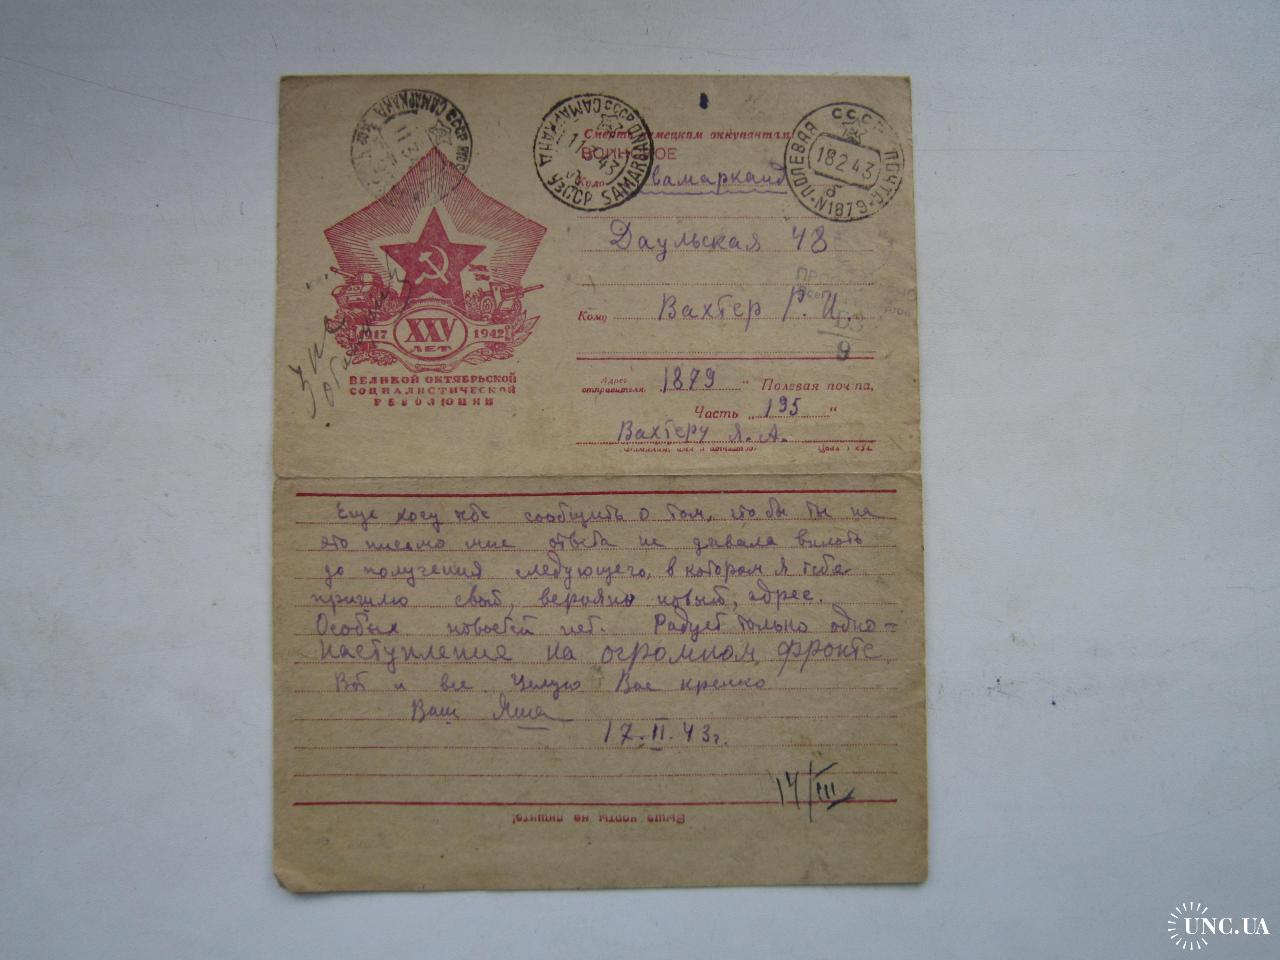 Смерть немецким оккупантам
ВОИНСКОЕ
Куда Самарканд
Даульская 48
Кому Вахтер Р. И.
63
9
Адрес отправителя 1879 " Полевая почта,
Часть „ 195 "
Вахтеру Я. А.
Фамилия, имя и отчество
СССР САМАРКАНД
11 3 43
УзССР SAMARQAND
СССР
18 2 43
б
ПОЛЕВАЯ ПОЧТА N1879
1917 XXV ЛЕТ 1942
ВЕЛИКОЙ ОКТЯБРЬСКОЙ
СОЦИАЛИСТИЧЕСКОЙ
РЕВОЛЮЦИИ
Еще хочу тебе сообщить о том, что бы ты на
это письмо мне ответа не давала вплоть
до получения следующего, в котором я тебе
пришлю свой, вероятно новый, адрес.
Особых новостей нет. Радует только одно —
наступление на огромном фронте.
Вот и все. Целую Вас крепко
Ваш Яша
17.II.43г.
17/III
Выше черты не пишите!
UNC.UA